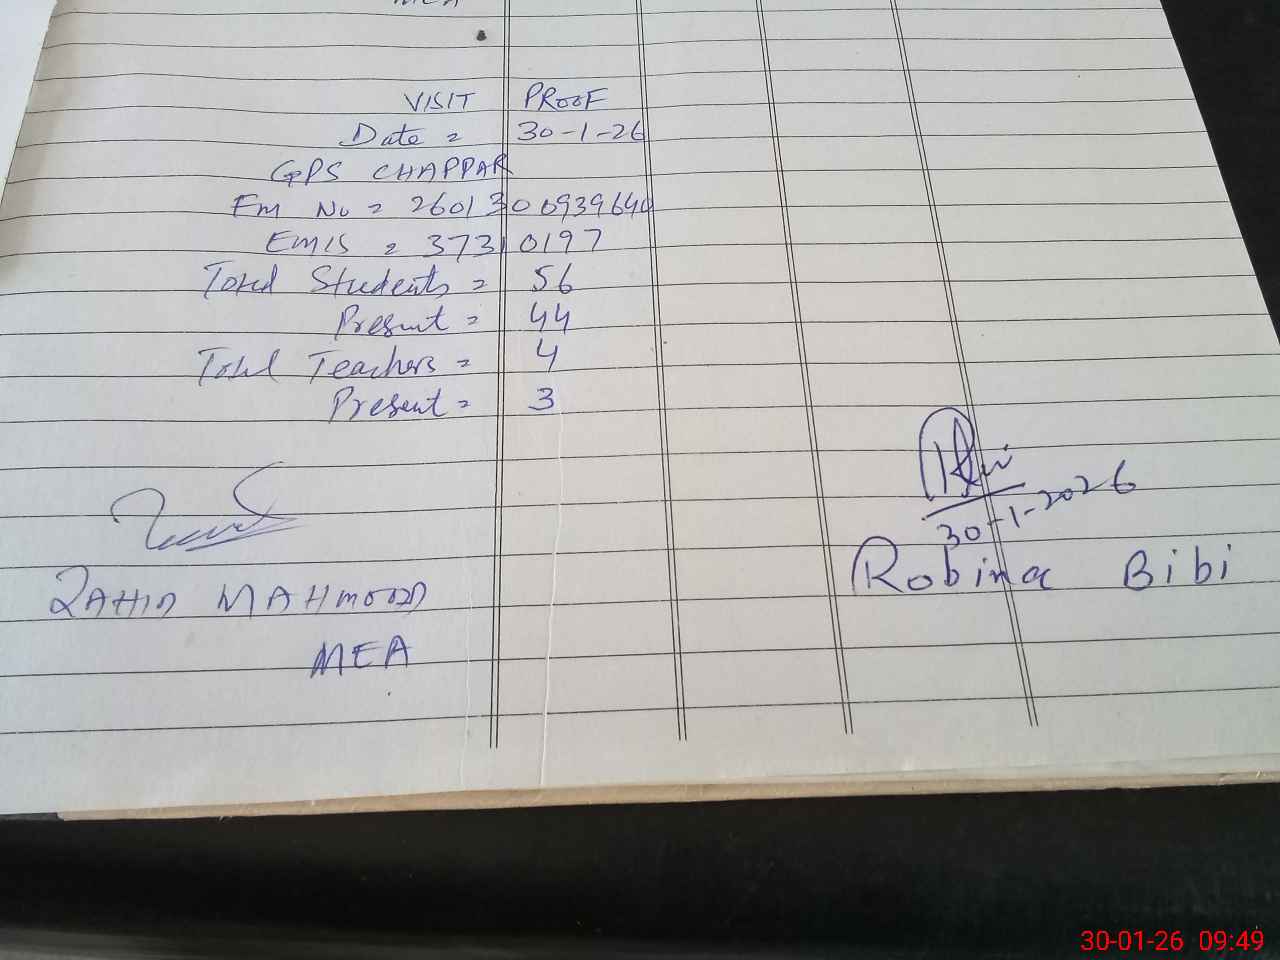 MEA
VISIT PROOF
Date = 30-1-26
GPS CHAPPAR
Em No = 2601300939640
EMIS = 37310197
Total Students = 56
Present = 44
Total Teachers = 4
Present = 3
30-1-2026
ZAHID MAHMOOD
Robina Bibi
MEA
30-01-26 09:49